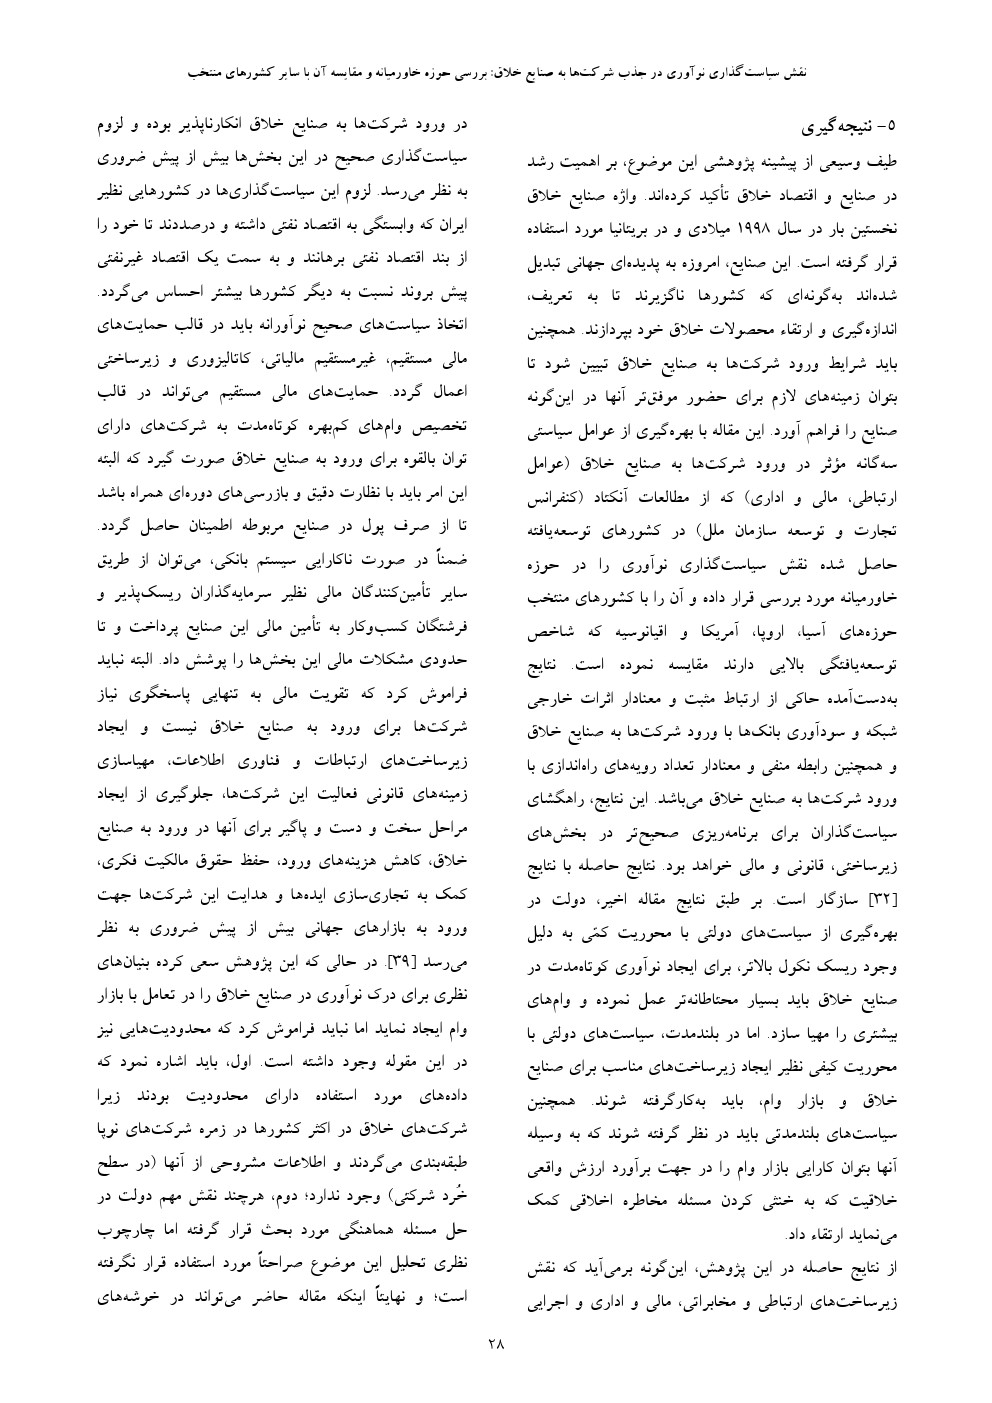 نقش سیاست‌گذاری نوآوری در جذب شرکت‌ها به صنایع خلاق: بررسی حوزه خاورمیانه و مقایسه آن با سایر کشورهای منتخب
۵- نتیجه‌گیری
طیف وسیعی از پیشینه پژوهشی این موضوع، بر اهمیت رشد
در صنایع و اقتصاد خلاق تأکید کرده‌اند. واژه صنایع خلاق
نخستین بار در سال ۱۹۹۸ میلادی و در بریتانیا مورد استفاده
قرار گرفته است. این صنایع، امروزه به پدیده‌ای جهانی تبدیل
شده‌اند به‌گونه‌ای که کشورها ناگزیرند تا به تعریف،
اندازه‌گیری و ارتقاء محصولات خلاق خود بپردازند. همچنین
باید شرایط ورود شرکت‌ها به صنایع خلاق تبیین شود تا
بتوان زمینه‌های لازم برای حضور موفق‌تر آنها در این‌گونه
صنایع را فراهم آورد. این مقاله با بهره‌گیری از عوامل سیاستی
سه‌گانه مؤثر در ورود شرکت‌ها به صنایع خلاق (عوامل
ارتباطی، مالی و اداری) که از مطالعات آنکتاد (کنفرانس
تجارت و توسعه سازمان ملل) در کشورهای توسعه‌یافته
حاصل شده نقش سیاست‌گذاری نوآوری را در حوزه
خاورمیانه مورد بررسی قرار داده و آن را با کشورهای منتخب
حوزه‌های آسیا، اروپا، آمریکا و اقیانوسیه که شاخص
توسعه‌یافتگی بالایی دارند مقایسه نموده است. نتایج
به‌دست‌آمده حاکی از ارتباط مثبت و معنادار اثرات خارجی
شبکه و سودآوری بانک‌ها با ورود شرکت‌ها به صنایع خلاق
و همچنین رابطه منفی و معنادار تعداد رویه‌های راه‌اندازی با
ورود شرکت‌ها به صنایع خلاق می‌باشد. این نتایج، راهگشای
سیاست‌گذاران برای برنامه‌ریزی صحیح‌تر در بخش‌های
زیرساختی، قانونی و مالی خواهد بود. نتایج حاصله با نتایج
[۳۲] سازگار است. بر طبق نتایج مقاله اخیر، دولت در
بهره‌گیری از سیاست‌های دولتی با محوریت کمّی به دلیل
وجود ریسک نکول بالاتر، برای ایجاد نوآوری کوتاه‌مدت در
صنایع خلاق باید بسیار محتاطانه‌تر عمل نموده و وام‌های
بیشتری را مهیا سازد. اما در بلندمدت، سیاست‌های دولتی با
محوریت کیفی نظیر ایجاد زیرساخت‌های مناسب برای صنایع
خلاق و بازار وام، باید به‌کارگرفته شوند. همچنین
سیاست‌های بلندمدتی باید در نظر گرفته شوند که به وسیله
آنها بتوان کارایی بازار وام را در جهت برآورد ارزش واقعی
خلاقیت که به خنثی کردن مسئله مخاطره اخلاقی کمک
می‌نماید ارتقاء داد.
از نتایج حاصله در این پژوهش، این‌گونه برمی‌آید که نقش
زیرساخت‌های ارتباطی و مخابراتی، مالی و اداری و اجرایی
در ورود شرکت‌ها به صنایع خلاق انکارناپذیر بوده و لزوم
سیاست‌گذاری صحیح در این بخش‌ها بیش از پیش ضروری
به نظر می‌رسد. لزوم این سیاست‌گذاری‌ها در کشورهایی نظیر
ایران که وابستگی به اقتصاد نفتی داشته و درصددند تا خود را
از بند اقتصاد نفتی برهانند و به سمت یک اقتصاد غیرنفتی
پیش بروند نسبت به دیگر کشورها بیشتر احساس می‌گردد.
اتخاذ سیاست‌های صحیح نوآورانه باید در قالب حمایت‌های
مالی مستقیم، غیرمستقیم مالیاتی، کاتالیزوری و زیرساختی
اعمال گردد. حمایت‌های مالی مستقیم می‌تواند در قالب
تخصیص وام‌های کم‌بهره کوتاه‌مدت به شرکت‌های دارای
توان بالقوه برای ورود به صنایع خلاق صورت گیرد که البته
این امر باید با نظارت دقیق و بازرسی‌های دوره‌ای همراه باشد
تا از صرف پول در صنایع مربوطه اطمینان حاصل گردد.
ضمناً در صورت ناکارایی سیستم بانکی، می‌توان از طریق
سایر تأمین‌کنندگان مالی نظیر سرمایه‌گذاران ریسک‌پذیر و
فرشتگان کسب‌وکار به تأمین مالی این صنایع پرداخت و تا
حدودی مشکلات مالی این بخش‌ها را پوشش داد. البته نباید
فراموش کرد که تقویت مالی به تنهایی پاسخگوی نیاز
شرکت‌ها برای ورود به صنایع خلاق نیست و ایجاد
زیرساخت‌های ارتباطات و فناوری اطلاعات، مهیاسازی
زمینه‌های قانونی فعالیت این شرکت‌ها، جلوگیری از ایجاد
مراحل سخت و دست و پاگیر برای آنها در ورود به صنایع
خلاق، کاهش هزینه‌های ورود، حفظ حقوق مالکیت فکری،
کمک به تجاری‌سازی ایده‌ها و هدایت این شرکت‌ها جهت
ورود به بازارهای جهانی بیش از پیش ضروری به نظر
می‌رسد [۳۹]. در حالی که این پژوهش سعی کرده بنیان‌های
نظری برای درک نوآوری در صنایع خلاق را در تعامل با بازار
وام ایجاد نماید اما نباید فراموش کرد که محدودیت‌هایی نیز
در این مقوله وجود داشته است. اول، باید اشاره نمود که
داده‌های مورد استفاده دارای محدودیت بودند زیرا
شرکت‌های خلاق در اکثر کشورها در زمره شرکت‌های نوپا
طبقه‌بندی می‌گردند و اطلاعات مشروحی از آنها (در سطح
خُرد شرکتی) وجود ندارد؛ دوم، هرچند نقش مهم دولت در
حل مسئله هماهنگی مورد بحث قرار گرفته اما چارچوب
نظری تحلیل این موضوع صراحتاً مورد استفاده قرار نگرفته
است؛ و نهایتاً اینکه مقاله حاضر می‌تواند در خوشه‌های
۲۸